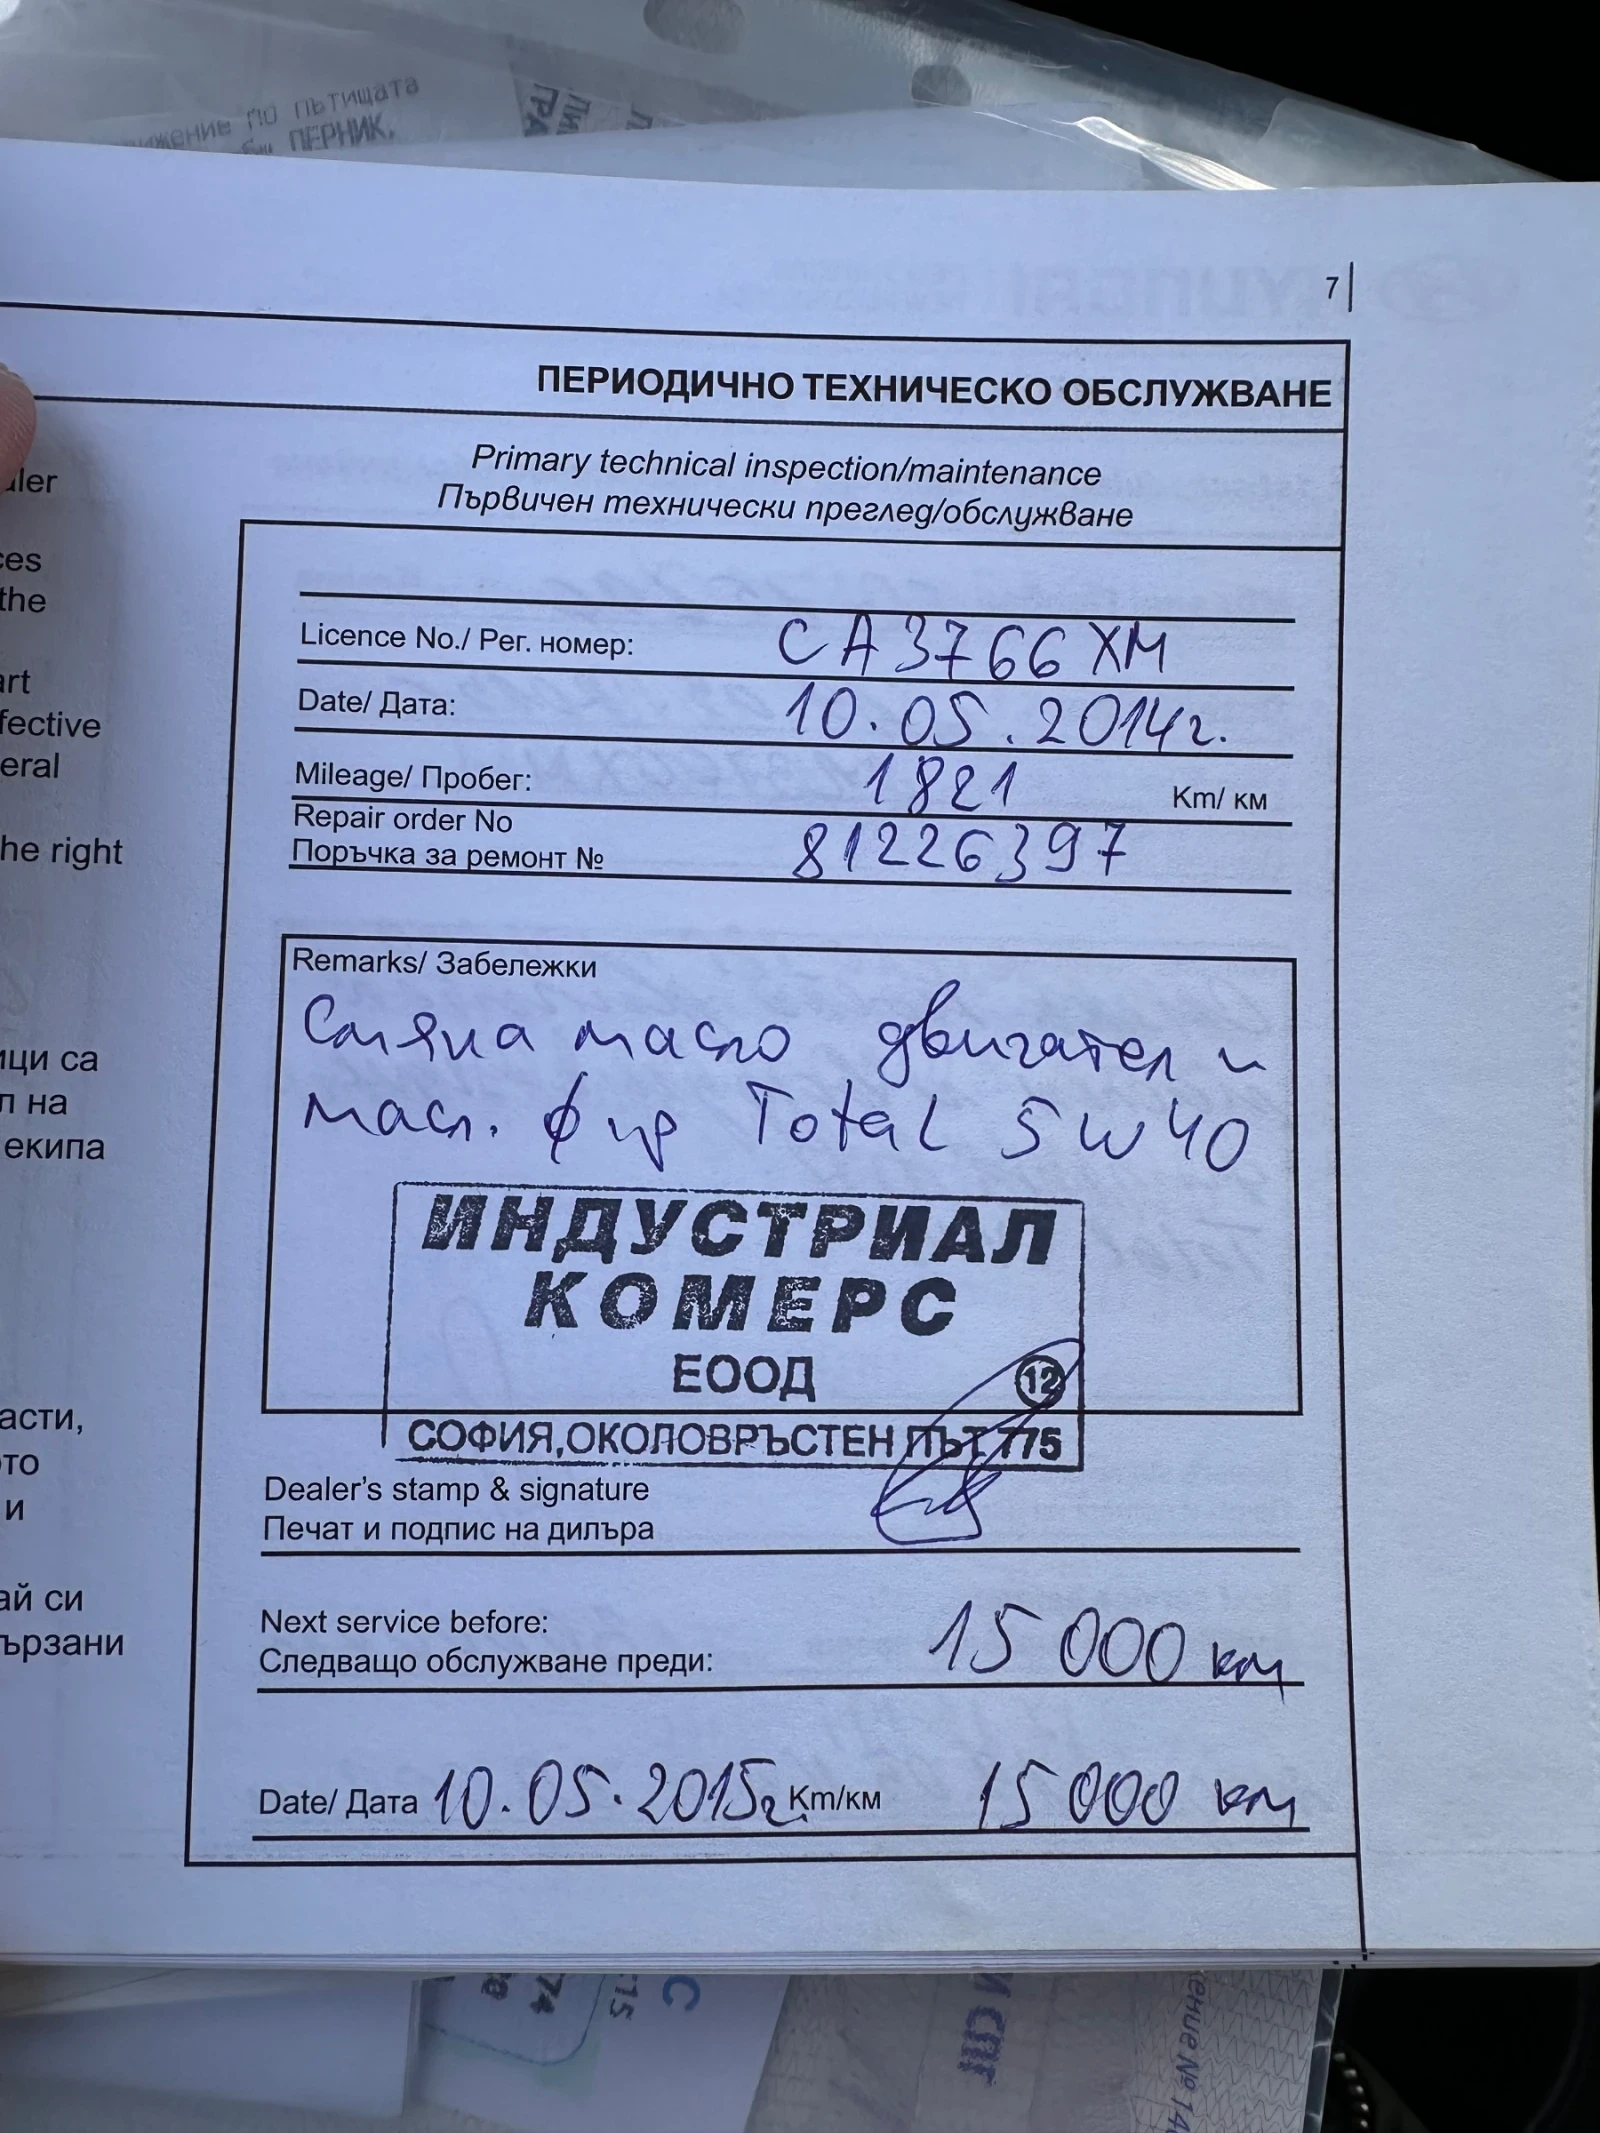 движение по пътищата
ПЕРНИК,
7
ПЕРИОДИЧНО ТЕХНИЧЕСКО ОБСЛУЖВАНЕ
Primary technical inspection/maintenance
Първичен технически преглед/обслужване
Licence No./ Рег. номер: CA3766XM
Date/ Дата: 10.05.2014г.
Mileage/ Пробег: 1821 Km/ км
Repair order No
Поръчка за ремонт № 81226397
Remarks/ Забележки
Смяна масло двигател и
масл. филр Total 5w40
ИНДУСТРИАЛ
КОМЕРС
ЕООД
12
СОФИЯ,ОКОЛОВРЪСТЕН ПЪТ 775
Dealer's stamp & signature
Печат и подпис на дилъра
Next service before:
Следващо обслужване преди: 15 000 км
Date/ Дата 10.05.2015г. Km/км 15 000 км
ces
the
fective
eral
he right
ици са
л на
екипа
асти,
ото
и
ай си
ързани